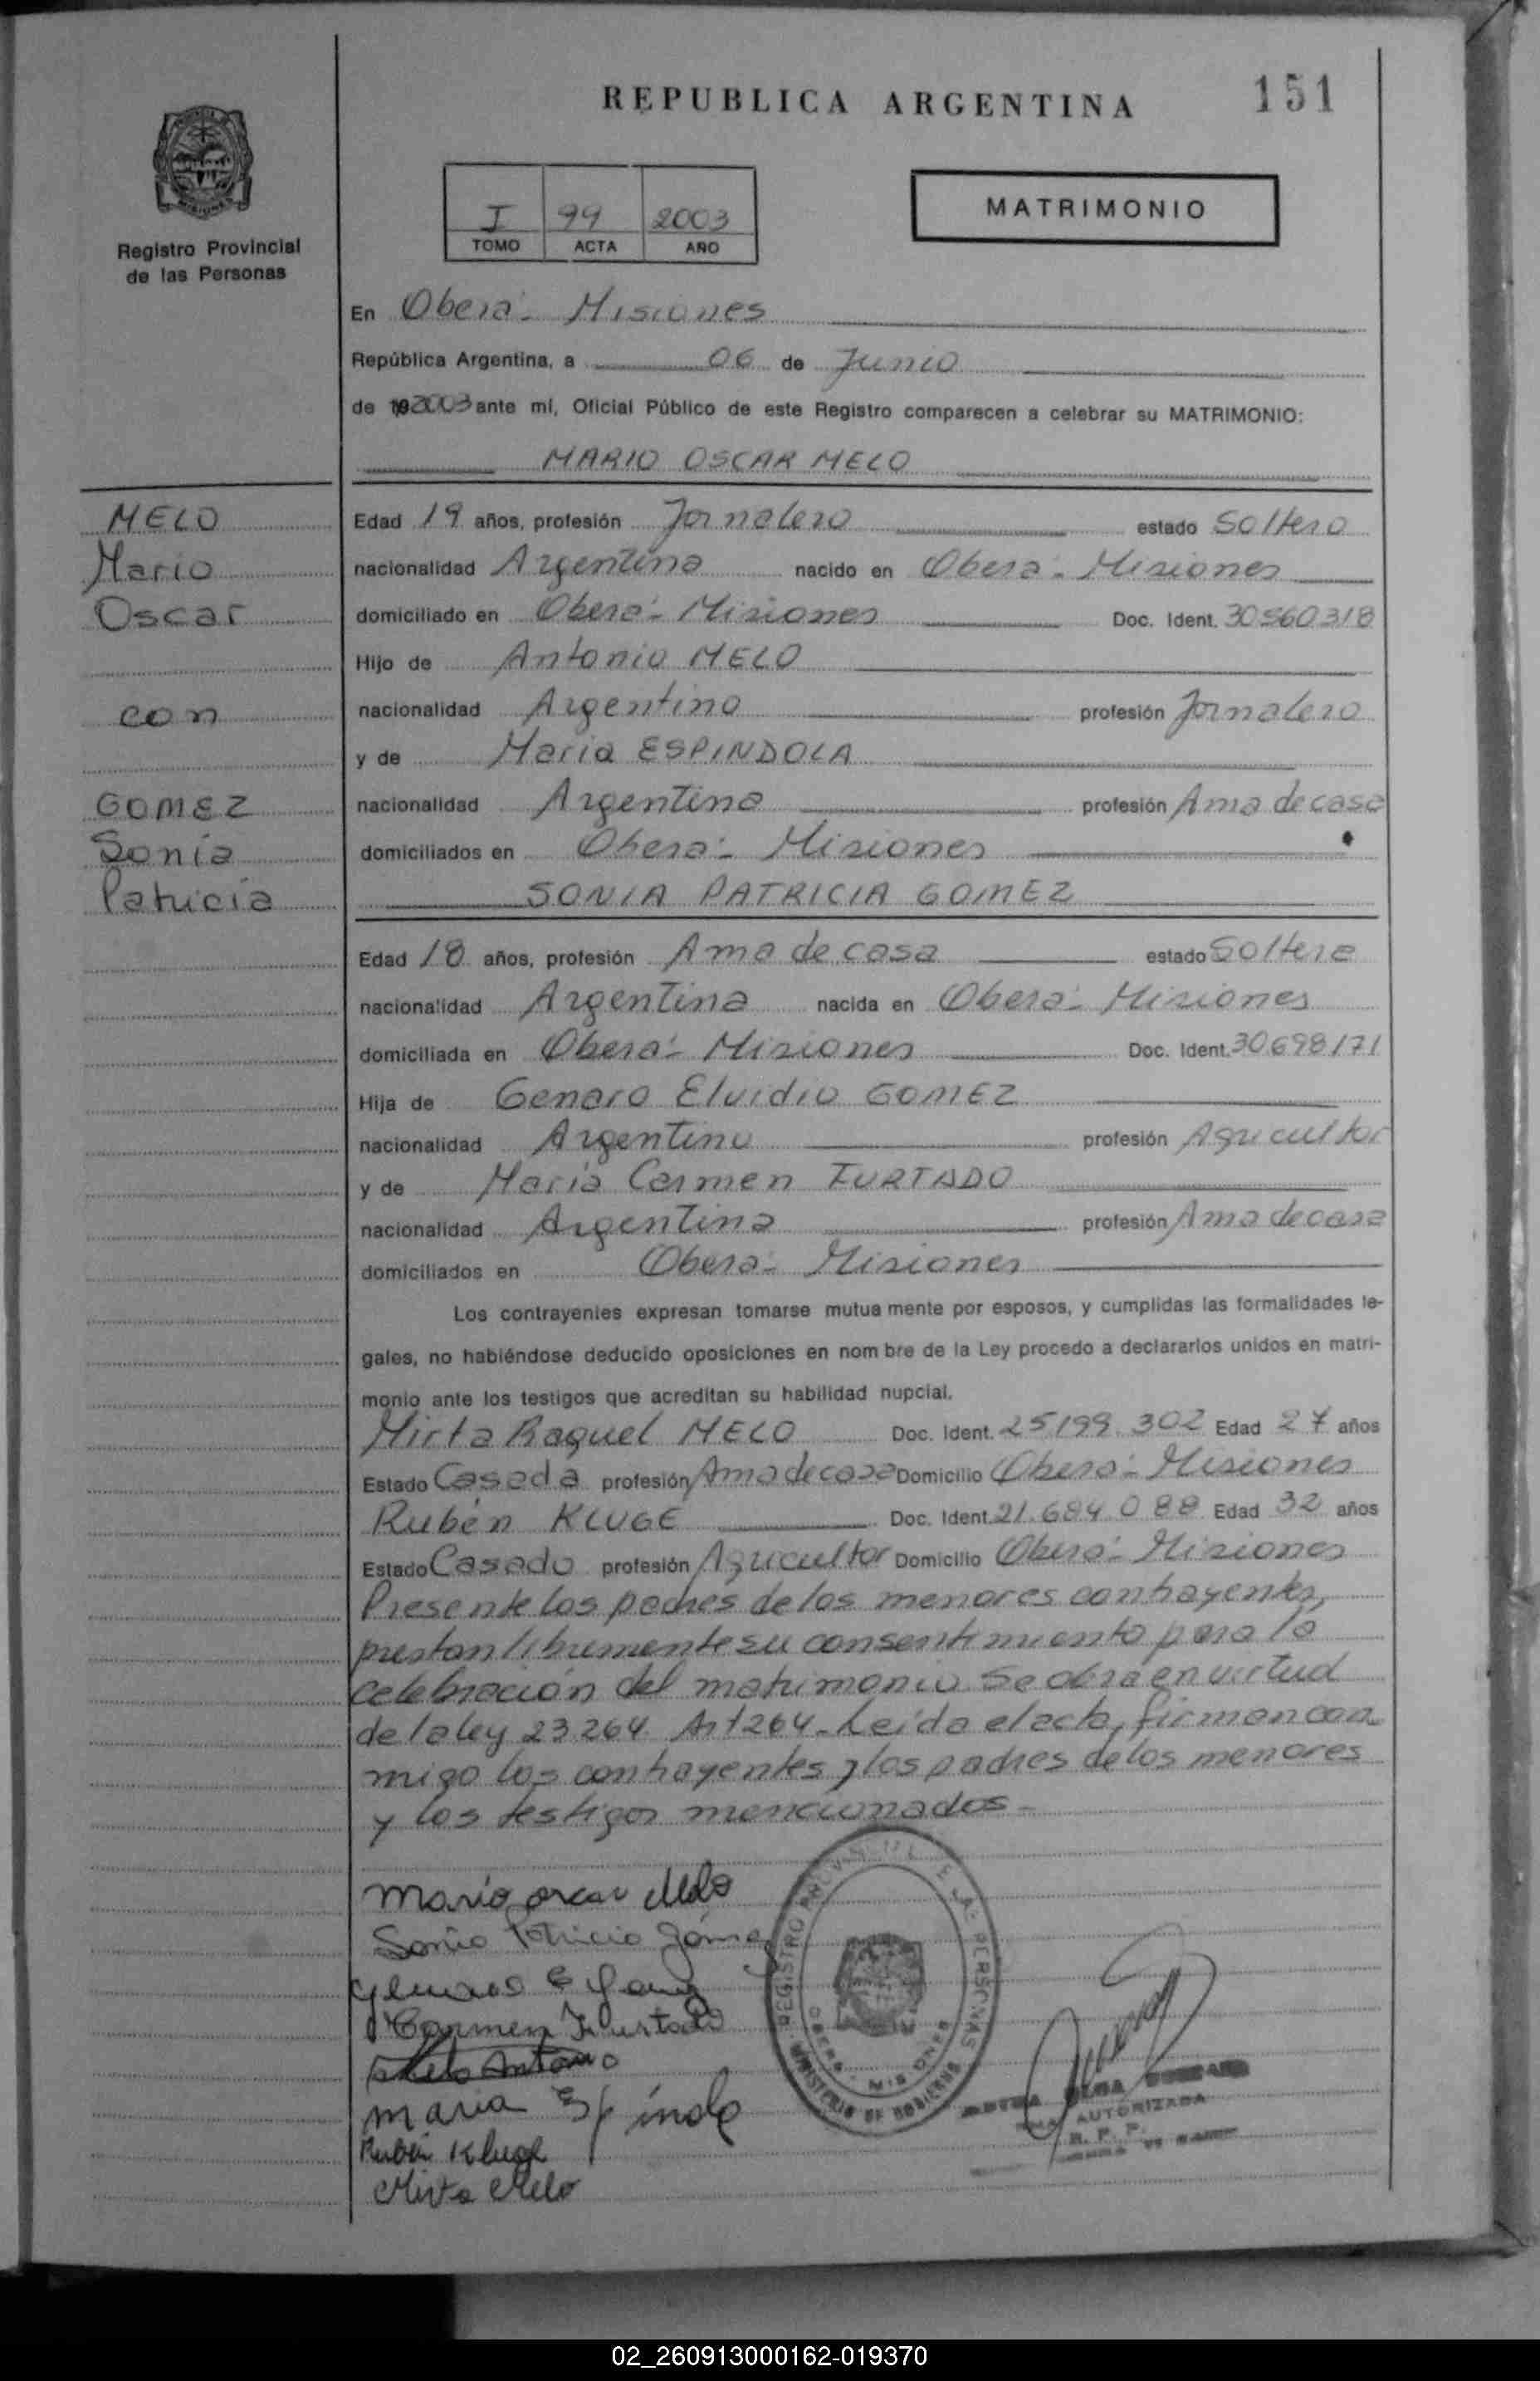 REPUBLICA ARGENTINA
151
Registro Provincial
de las Personas
I 99 2003
TOMO ACTA AÑO
MATRIMONIO
En Oberá - Misiones
República Argentina, a 06 de Junio
de 192003 ante mí, Oficial Público de este Registro comparecen a celebrar su MATRIMONIO:
MARIO OSCAR MELO
MELO
Mario
Oscar
con
GOMEZ
Sonia
Patricia
Edad 19 años, profesión Jornalero estado Soltero
nacionalidad Argentina nacido en Oberá - Misiones
domiciliado en Oberá - Misiones Doc. Ident. 30560318
Hijo de Antonio MELO
nacionalidad Argentino profesión Jornalero
y de Maria ESPINDOLA
nacionalidad Argentina profesión Ama de casa
domiciliados en Oberá - Misiones
SONIA PATRICIA GOMEZ
Edad 18 años, profesión Ama de casa estado Soltera
nacionalidad Argentina nacida en Oberá - Misiones
domiciliada en Oberá - Misiones Doc. Ident. 30698171
Hija de Genaro Elvidio GOMEZ
nacionalidad Argentino profesión Agricultor
y de Maria Carmen FURTADO
nacionalidad Argentina profesión Ama de casa
domiciliados en Oberá - Misiones
Los contrayentes expresan tomarse mutua mente por esposos, y cumplidas las formalidades le-
gales, no habiéndose deducido oposiciones en nom bre de la Ley procedo a declararlos unidos en matri-
monio ante los testigos que acreditan su habilidad nupcial.
Mirta Raquel MELO Doc. Ident. 25.199.302 Edad 27 años
Estado Casada profesión Ama de casa Domicilio Oberá - Misiones
Rubén KLUGE Doc. Ident. 21.684.088 Edad 32 años
Estado Casado profesión Agricultor Domicilio Oberá - Misiones
Presente los padres de los menores contrayentes,
prestan libremente su consentimiento para la
celebración del matrimonio. Se obra en virtud
de la ley 23.264 Art 264 - Leída el acta, firman con
migo los contrayentes y los padres de los menores
y los testigos mencionados -
Mario oscar Melo
Sonia Patricia Gómez
Carmen Furtado
Melo Antonio
Maria Espíndola
Rubén Kluge
Mirta Melo
REGISTRO PROVINCIAL DE LAS PERSONAS
OBERA - MISIONES
MINISTERIO DE GOBIERNO
AUTORIZADA
R. P. P.
02_260913000162-019370